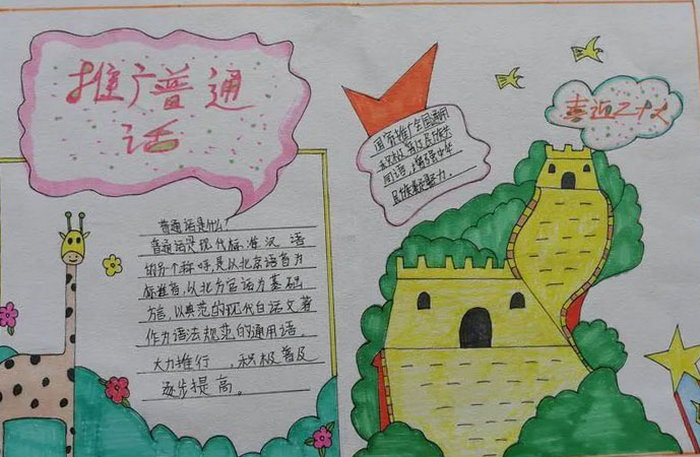 推广普通
话
普通话是什么?
普通话是现代标准汉语
的另个称呼,是以北京语音为
标准音,以北方官话为基础
方言,以典范的现代白话文著
作为语法规范的通用语。
大力推行,积极普及
逐步提高。
国家推广全国通用
积极普及民族共
同语,增强中华
民族凝聚力.
喜迎二十大